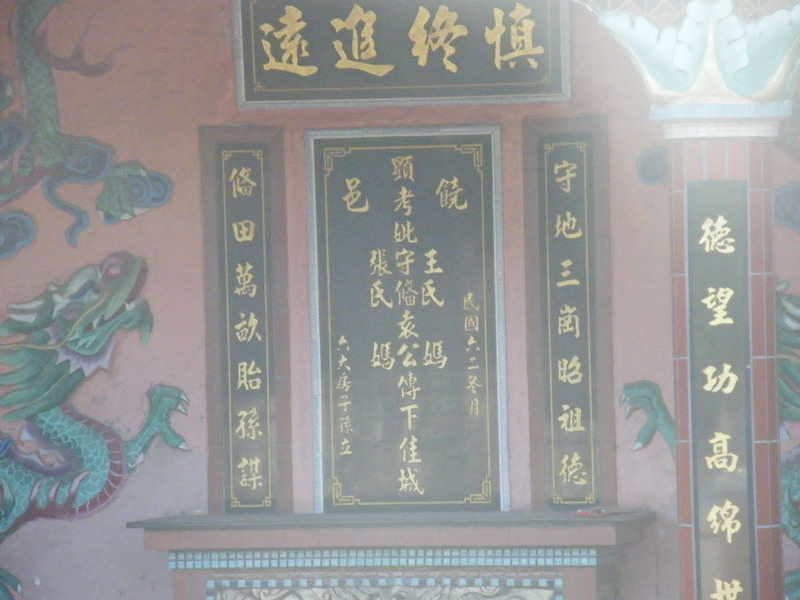 慎終追遠
德望功高綿世
守地三崗昭祖德
饒邑
民國六二冬月
王氏媽
顯考妣守脩袁公傳下佳城
張氏媽
六大房子孫立
脩田萬畝貽孫謀